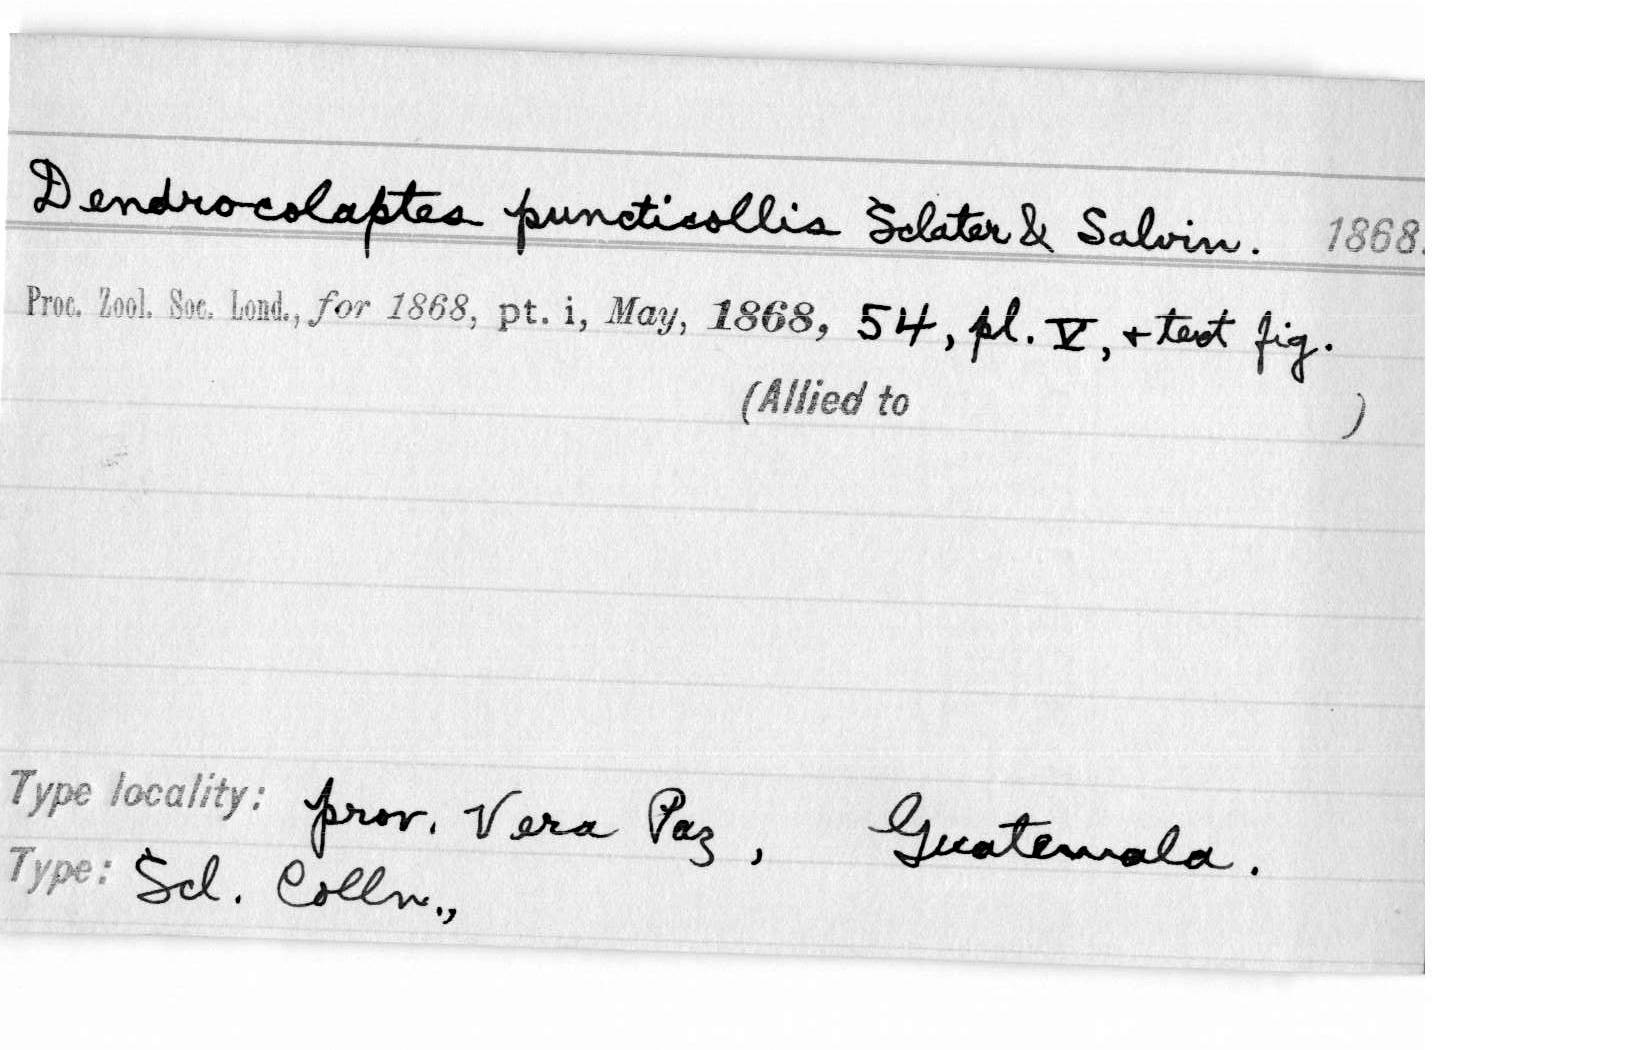 Dendrocolaptes puncticollis Sclater & Salvin. 1868.
Proc. Zool. Soc. Lond., for 1868, pt. i, May, 1868, 54, pl. V, + text fig.
(Allied to )
Type locality: prov. Vera Paz, Guatemala.
Type: Scl. Colln.,